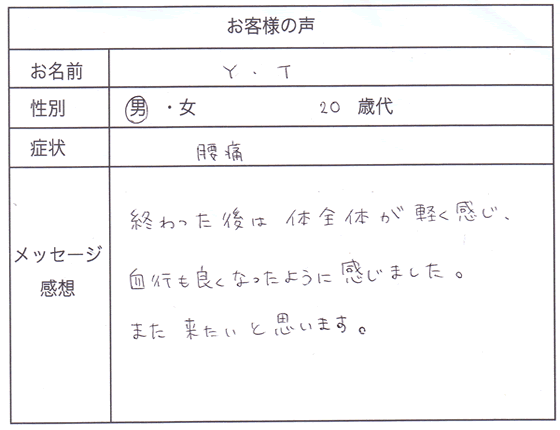 お客様の声
お名前 Y.T
性別 男・女 20 歳代
症状 腰痛
メッセージ
感想
終わった後は体全体が軽く感じ、
血行も良くなったように感じました。
また来たいと思います。